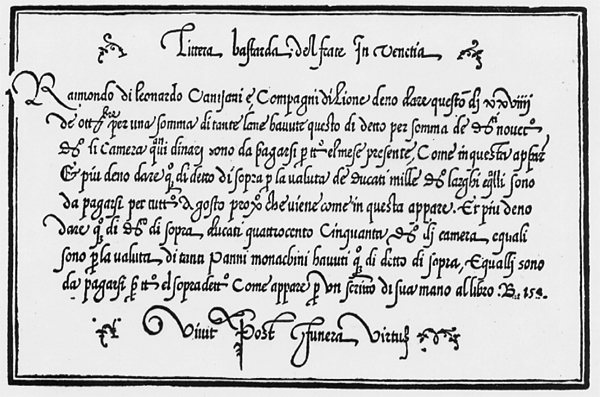 Littera bastarda del frate In Venetia
Raimondo di leonardo Canisani e Compagni di Lione deno dare questo dì xxviiij
de ottobre per una somma di tante lane havute questo di detto per somma de
li Camera dinarj sono da pagarsi p elmese presente, Come in questa
E piu deno dare di detto di sopra p la valuta de ducati mille larghi sono
da pagarsi per tutto Agosto che viene come in questa appare. Et piu deno
dare di di sopra, ducati quattrocento Cinquanta, camera equali
sono p la valuta di tanti Panni monachini havuti di ditto di sopra, Equalli sono
da pagarsi p el sopradetto Come appare p Vn scritto di sua mano al libro
Viuit Post funera Virtus